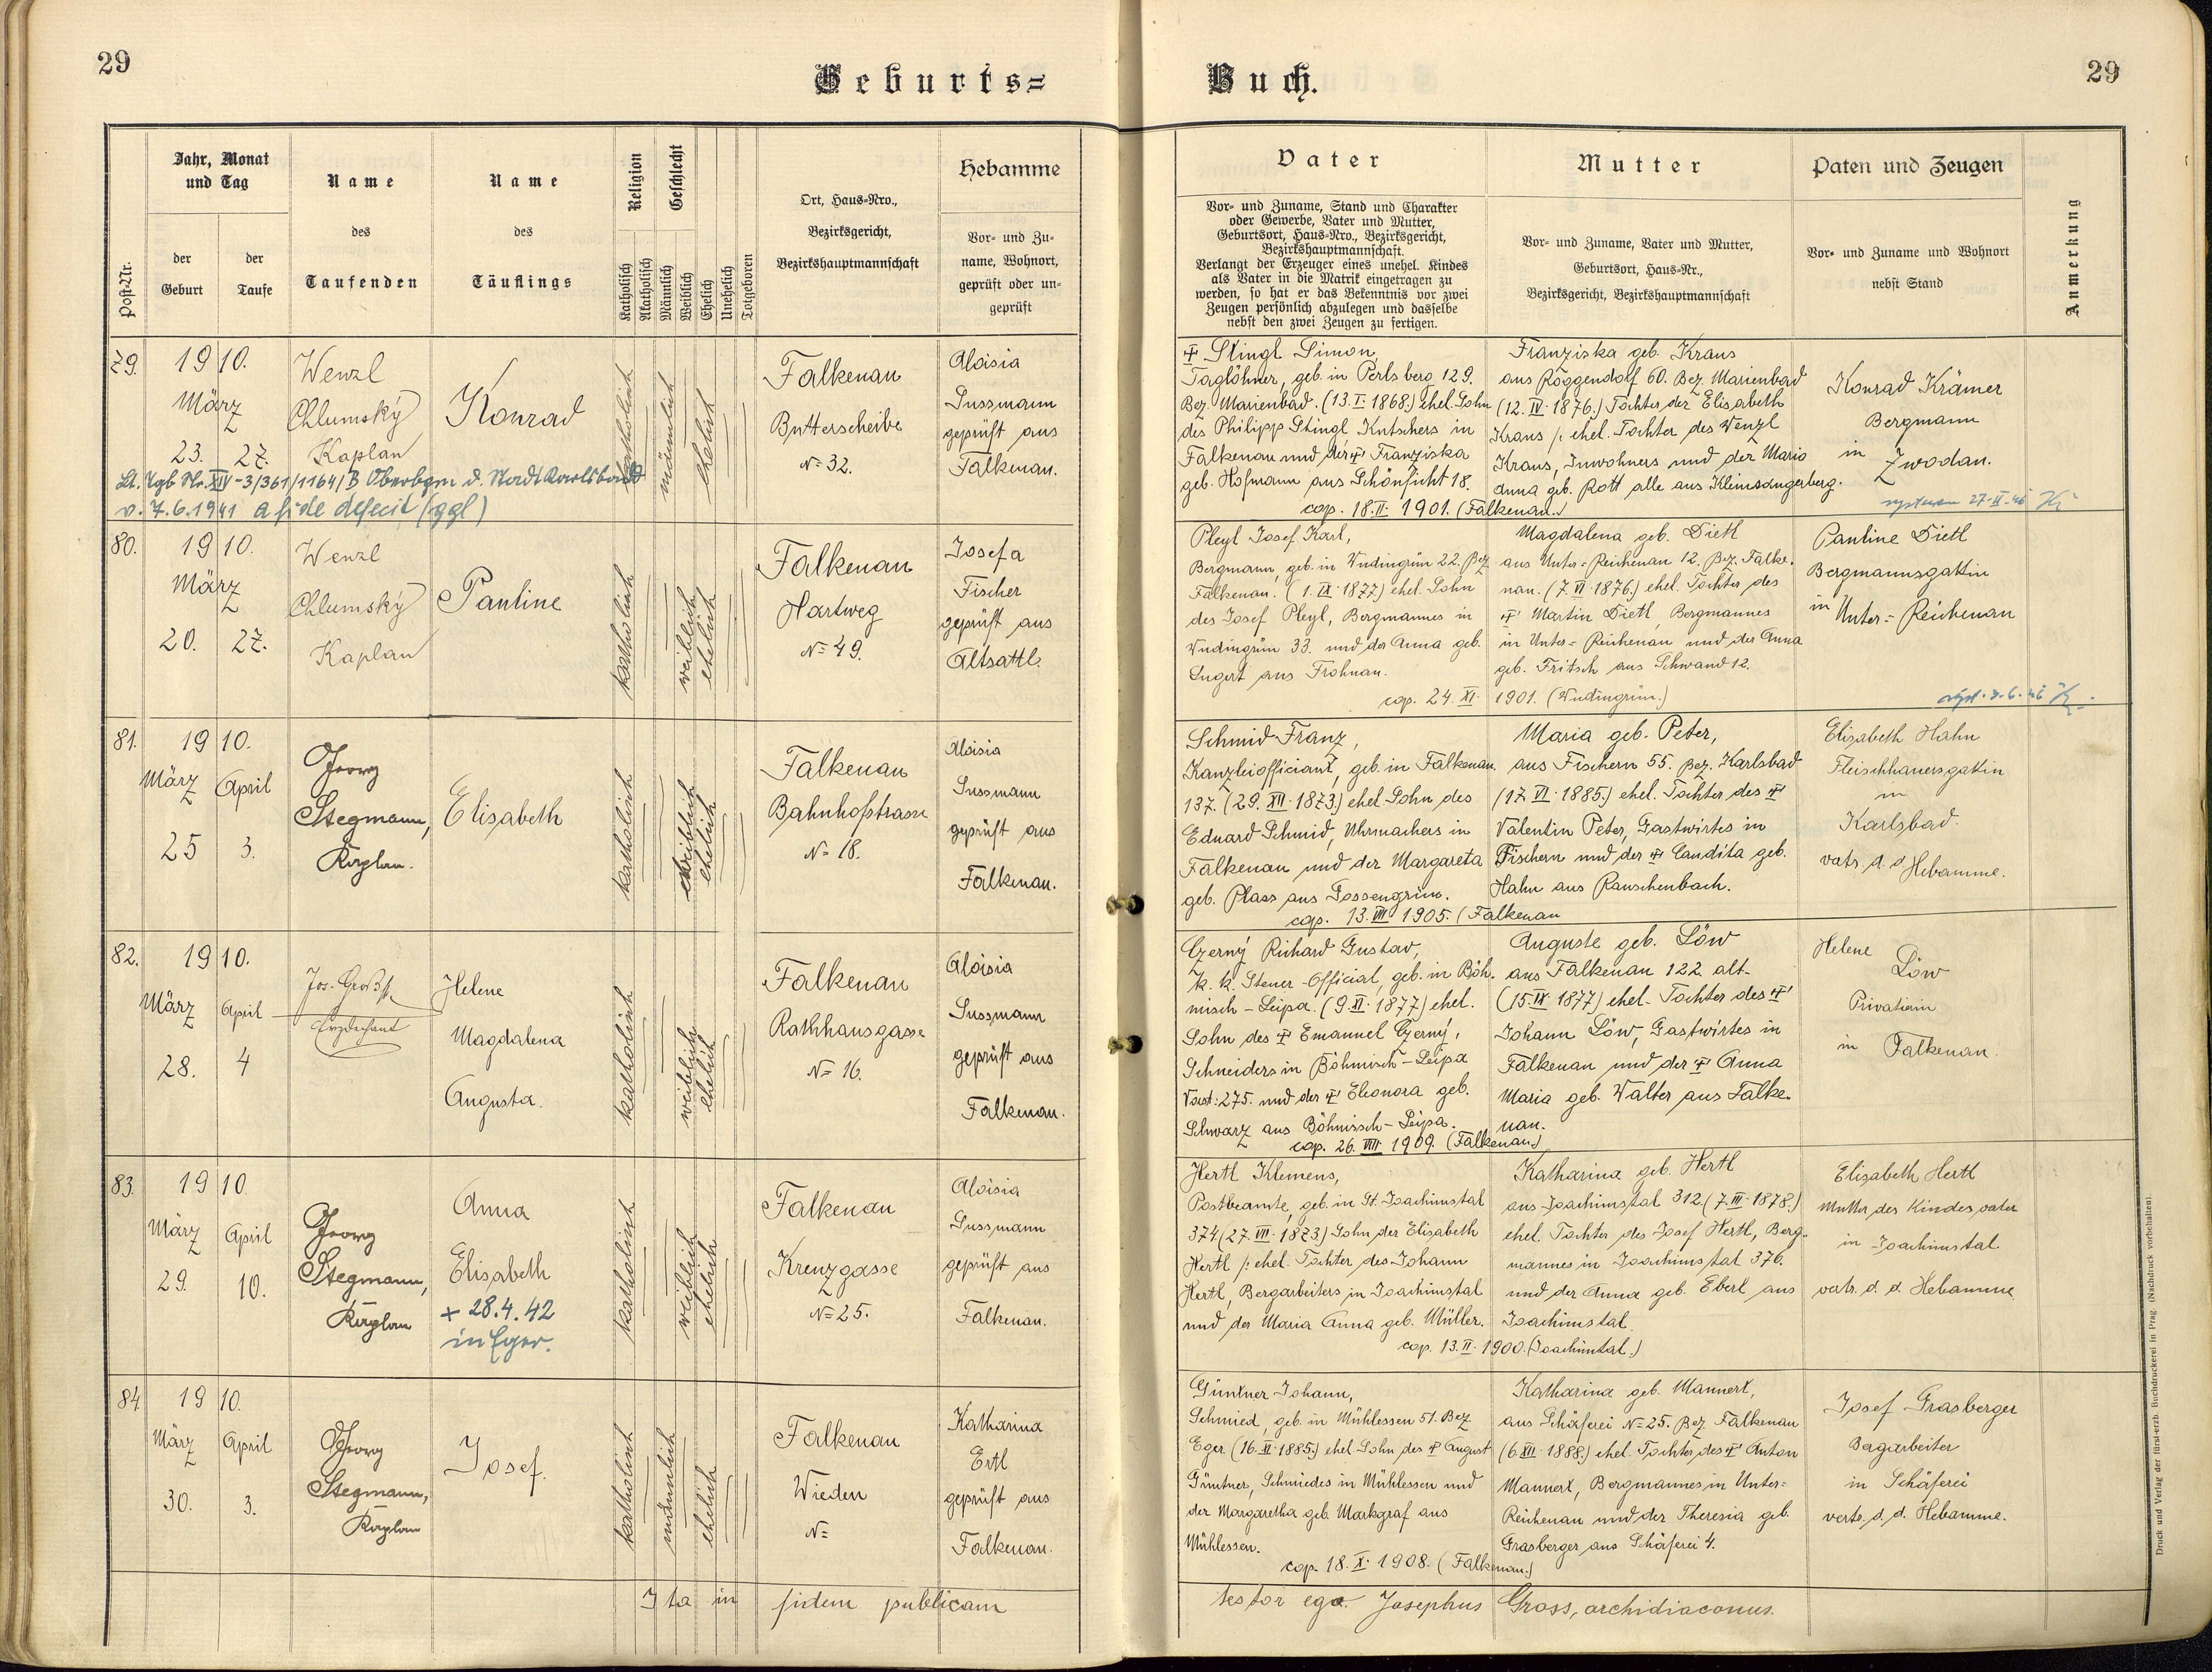 29
Geburts=
Buch.
29
Post-Nr.
Jahr, Monat
und Tag
der
Geburt
der
Taufe
Name
des
Taufenden
Name
des
Täuflings
Religion
Katholisch
Akatholisch
Geschlecht
Männlich
Weiblich
Ehelich
Unehelich
Totgeboren
Ort, Haus=Nro.,
Bezirksgericht,
Bezirkshauptmannschaft
Hebamme
Vor= und Zu=
name, Wohnort,
geprüft oder un=
geprüft
Vater
Vor= und Zuname, Stand und Charakter
oder Gewerbe, Vater und Mutter,
Geburtsort, Haus=Nro., Bezirksgericht,
Bezirkshauptmannschaft.
Verlangt der Erzeuger eines unehel. Kindes
als Vater in die Matrik eingetragen zu
werden, so hat er das Bekenntnis vor zwei
Zeugen persönlich abzulegen und dasselbe
nebst den zwei Zeugen zu fertigen.
Mutter
Vor= und Zuname, Vater und Mutter,
Geburtsort, Haus=Nr.,
Bezirksgericht, Bezirkshauptmannschaft
Paten und Zeugen
Vor= und Zuname und Wohnort
nebst Stand
Anmerkung
79.
1910.
März
23. 27.
Wenzl
Chlumský
Kaplan
Konrad
katholisch
männlich
ehelich
Falkenau
Butterscheibe
No 32.
Aloisia
Sussmann
geprüft aus
Falkenau.
Lt. Tgb Nr. XIV-3/361/1164/B Oberbgm d. Stadt Karlsbad
v. 7.6.1941 a fide defecit (ggl)
✝ Stingl Simon,
Taglöhner, geb. in Perlsberg 129.
Bez. Marienbad. (13. I. 1868.) ehel. Sohn
des Philipp Stingl Kutschers in
Falkenau und der ✝ Franziska
geb. Hofmann aus Schönficht 18.
Franziska geb. Kraus
aus Roggendorf 60. Bez. Marienbad
(12. IV. 1876.) Tochter der Elisabeth
Kraus /: ehel. Tochter des Wenzl
Kraus, Inwohners und der Maria
Anna geb. Rott alle aus Kleinsangerberg.
cop. 18. II. 1901. (Falkenau.)
Konrad Krämer
Bergmann
in
Zwodau.
27-II-46
80.
1910.
März
20. 27.
Wenzl
Chlumský
Kaplan
Pauline
katholisch
weiblich
ehelich
Falkenau
Hartweg
No 49.
Josefa
Fischer
geprüft aus
Altsattl.
Pleyl Josef Karl,
Bergmann, geb. in Wudingrün 22. Bez.
Falkenau. (1. IX. 1877.) ehel. Sohn
des Josef Pleyl, Bergmannes in
Wudingrün 33. und der Anna geb.
Lugert aus Frohnau.
Magdalena geb. Dietl
aus Unter=Reichenau 12. Bez. Falke.
nau. (7. VI. 1876.) ehel. Tochter des
✝ Martin Dietl, Bergmannes
in Unter=Reichenau und der Anna
geb. Fritsch aus Schwand 12.
cop. 24. XI. 1901. (Wudingrün.)
Pauline Dietl
Bergmannsgattin
in Unter=Reichenau
81.
1910.
März April
25 3.
Georg
Stegmann,
Kaplan.
Elisabeth
katholisch
weiblich
ehelich
Falkenau
Bahnhofstrasse
No 18.
Aloisia
Sussmann
geprüft aus
Falkenau.
Schmid Franz,
Kanzleiofficiant, geb. in Falkenau.
137. (29. XII. 1873.) ehel. Sohn des
Eduard Schmid, Uhrmachers in
Falkenau und der Margareta
geb. Plass aus Gossengrün.
Maria geb. Peter,
aus Fischern 55. Bez. Karlsbad
(17. VI. 1885.) ehel. Tochter des ✝
Valentin Peter, Gastwirtes in
Fischern und der ✝ Candita geb.
Hahn aus Rauschenbach.
cop. 13. VIII. 1905. (Falkenau
Elisabeth Hahn
Fleischhauersgattin
in
Karlsbad.
vertr. d. d. Hebamme.
82.
1910.
März April
28. 4
Jos. Groß
Erzdechant
Helene
Magdalena
Augusta.
katholisch
weiblich
ehelich
Falkenau
Rathhausgasse
No 16.
Aloisia
Sussmann
geprüft aus
Falkenau.
Czerný Richard Gustav,
k. k. Steuer-Official, geb. in Böh.
misch-Leipa. (9. XI. 1877) ehel.
Sohn des ✝ Emanuel Czerný,
Schneiders in Böhmisch-Leipa
Vorst: 275. und der ✝ Eleonora geb.
Schwarz aus Böhmisch-Leipa.
Auguste geb. Löw
aus Falkenau 122. alt-
(15. IX. 1877) ehel. Tochter des ✝
Johann Löw, Gastwirtes in
Falkenau und der ✝ Anna
Maria geb. Walter aus Falke.
nau.
cop. 26. VIII 1909. (Falkenau.)
Helene
Löw
Privatierin
in Falkenau.
83.
1910
März April
29. 10.
Georg
Stegmann,
Kaplan
Anna
Elisabeth
+ 28.4.42
in Eger.
katholisch
weiblich
ehelich
Falkenau
Kreuzgasse
No 25.
Aloisia
Sussmann
geprüft aus
Falkenau.
Hertl Klemens,
Postbeamte, geb. in St. Joachimstal
374 (27. VII. 1873.) Sohn der Elisabeth
Hertl /: ehel. Tochter des Johann
Hertl, Bergarbeiters in Joachimstal
und der Maria Anna geb. Müller.
Katharina geb. Hertl
aus Joachimstal 312 (7. III. 1878.)
ehel. Tochter des Josef Hertl, Berg.
mannes in Joachimstal 376.
und der Anna geb. Eberl aus
Joachimstal.
cop. 13. II. 1900. (Joachimtal.)
Elisabeth Hertl
Mutter des Kindesvater
in Joachimstal.
vertr. d. d. Hebamme
84
1910.
März April
30. 3.
Georg
Stegmann,
Kaplan
Josef.
katholisch
männlich
ehelich
Falkenau
Wieden
No
Katharina
Ertl
geprüft aus
Falkenau.
Güntner Johann,
Schmied, geb. in Mühlessen 51. Bez.
Eger (16. XI. 1885.) ehel. Sohn des ✝ August
Güntner, Schmiedes in Mühlessen und
der Margaretha geb. Markgraf aus
Mühlessen.
Katharina geb. Mannert,
aus Schäferei No 25. Bez. Falkenau
(6. XII. 1888.) ehel. Tochter des ✝ Anton
Mannert, Bergmannes in Unter=
Reichenau und der Theresia geb.
Grasberger aus Schäferei 4.
cop. 18. X. 1908. (Falkenau.)
Josef Grasberger
Bergarbeiter
in Schäferei
vertr. d. d. Hebamme.
Ita in fidem publicam
testor ego Josephus Gross, archidiaconus.
Druck und Verlag der fürst-erzb. Buchdruckerei in Prag. (Nachdruck vorbehalten).